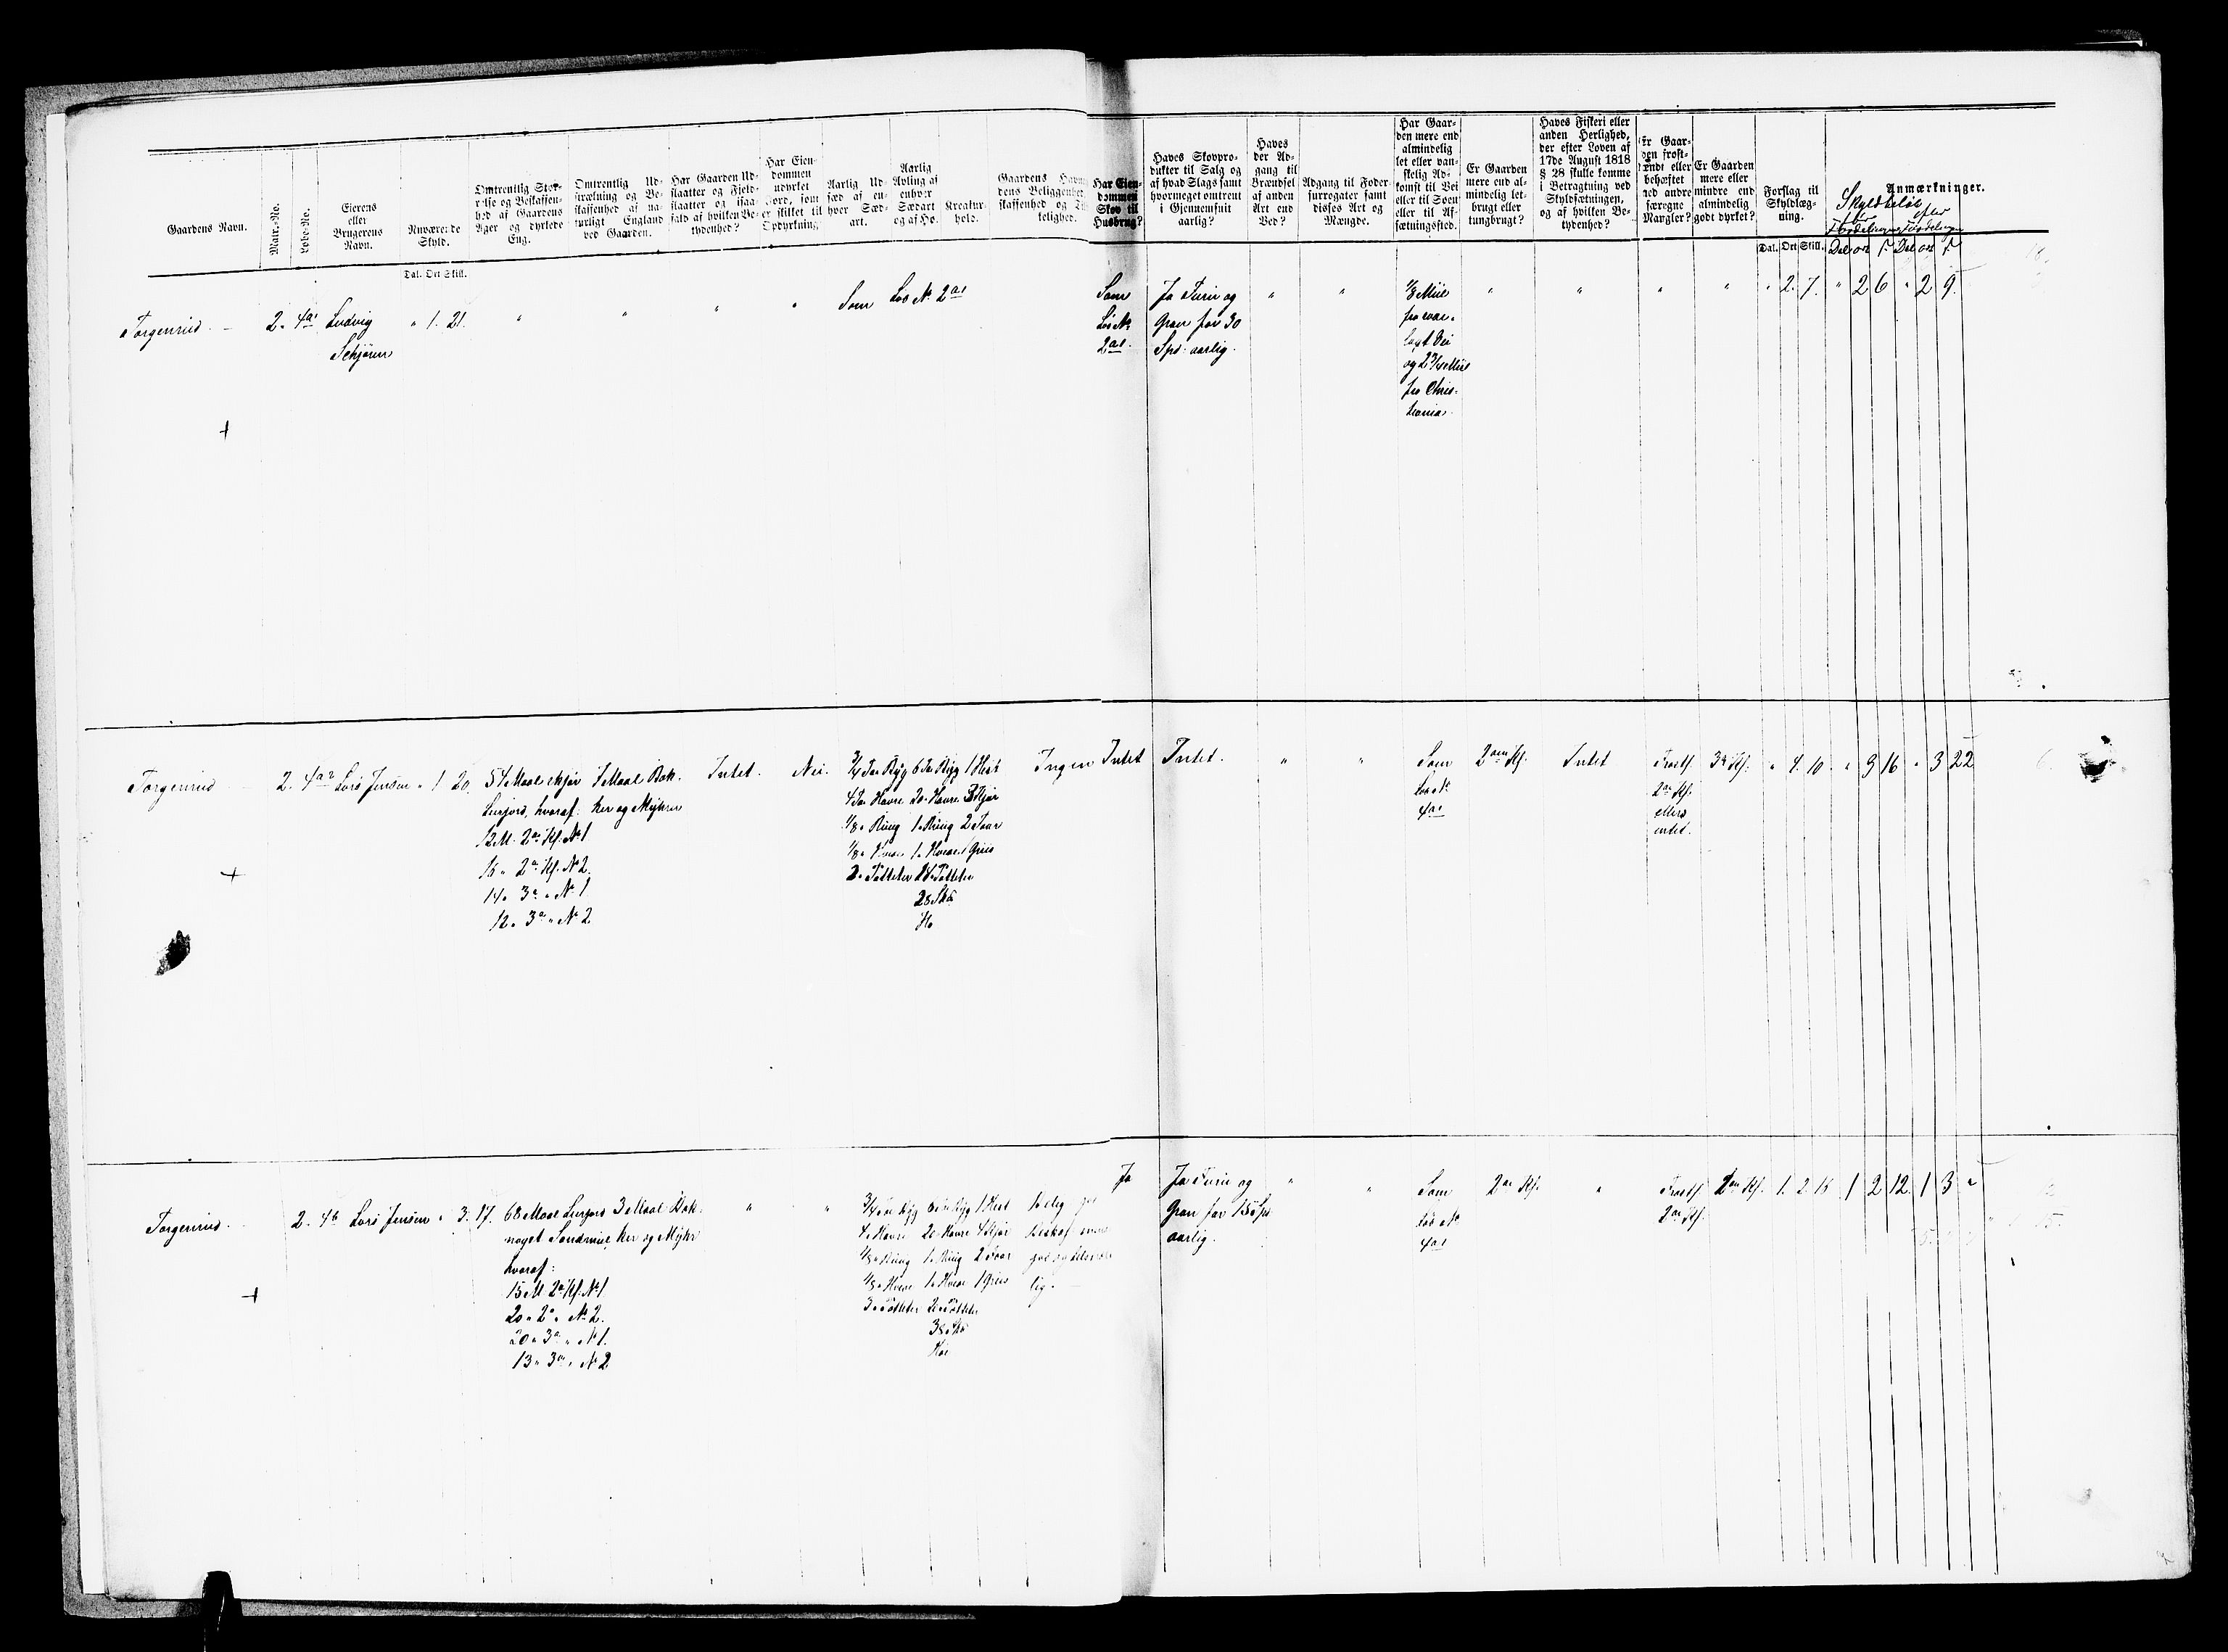 Gaardens Navn.
Matr.-No.
Løbe-No.
Eierens
eller
Brugerens
Navn.
Nuværende
Skyld.
Omtrentlig Stør-
relse og Beskaffen-
hed af Gaardens
Ager og dyrkede
Eng.
Omtrentlig Ud-
strækning og Be-
skaffenhed af na-
turligt England
ved Gaarden.
Har Gaarden Ud-
slaatter og Fjeld-
slaatter og isaa-
fald af hvilken Be-
tydenhed?
Har Eien-
dommen
udyrket
Jord, som
er skikket til
Opdyrkning
Aarlig Ud-
sæd af en-
hver Sæd-
art.
Aarlig
Avling af
enhver
Sædart
og af Hø.
Kreatur-
hold.
Gaardens Havne
dens Beliggenhed
skaffenhed og Til
telighed.
Har Eien-
dommen
Skov til
Husbrug?
Haves Skovpro-
dukter til Salg og
af hvad Slags samt
hvormeget omtrent
i Gjennemsnit
aarlig?
Haves
der Ad-
gang til
Brændsel
af anden
Art end
Ved?
Adgang til Foder-
surrogater samt
disses Art og
Mængde.
Har Gaar-
den mere end
almindelig
let eller van-
skelig Ad-
komst til Vei
eller til Søen
eller til Af-
sætningssted.
Er Gaarden
mere end al-
mindelig let-
brugt eller
tungbrugt?
Haves Fiskeri eller
anden Herlighed,
der efter Loven af
17de August 1818
§ 28 skulle komme
i Betragtning ved
Skyldsætningen,
og af hvilken Be-
tydenhed?
Er Gaar-
den frost-
lændt eller
behæftet
med andre
særegne
Mangler?
Er Gaarden
mere eller
mindre end
almindelig
godt dyrket?
Forslag til
Skyldlæg-
ning.
Anmærkninger.
Skyldbeløb
før efter
Fordelingen Fordelingen
Dal. Ort Skill.
Dal. Ort Skill. Dal ort ß Dal ort ß
Torgenrud. 2. 4a1 Ludvig " 1. 21. " " " " Som Løb No. 2a1
Schjøren
Som
Løb No
2a1.
Ja Turie og
Gran for 30
Spd: aarlig.
" "
1/8 Miil
fra
lagt Vei
og 2 3/4 Miil
fra Chris-
tiania.
" " " " " 2. 7. " 2 6 " 2 9.
Torgenrud 2. 4a2 Lars Jensen " 1 20.
54 Maal skjør
Leerjord, hvoraf:
12 M. 2a Kl. No 1
16 " 2a Kl. No 2.
14 " 3a " No 1
12 " 3a " No 2.
7 Maal Bak-
ker og Myhrer
Intet. Nei.
3/4 Tø Rüg 6 Tø Rüg 1 Hest
4 Tø Havre 20 " Havre 3 Kjør
1/8 " Biug 1 " Biug 2 Faar
1/8 " Hvede 1 " Hvede 1 Griis
2 " Poteter 24 " Poteter
28 Skø
Hø
Ingen Intet Intet. " "
Som
Løb No
4a1
2den Kl. Intet
Frostf
2den Kl.
ellers
intet.
3de Kl. " 4. 10. " 3 16 " 3 22
Torgenrud. 2. 4b Lars Jensen " 3. 17.
68 Maal Leerjord
noget Sandmuld,
hvoraf:
15 M 2a Kl. No 1.
20 " 2a " No 2.
20 " 3a " No 1.
13 " 3a " No 2
3 Maal Bak-
ker og Myhr
" "
3/4 Tø Rüg 6 Tø Rüg 1 Hest
4 " Havre 20 " Havre 4 Kjør
1/8 " Biug 1 " Biug 2 Faar
1/8 " Hvede 1 " Hvede 1 Griis
3 " Poteter 20 " Poteter
38 Skø
Hø
lig.
Ja
Ja Turie og
Gran for 15 Spd
aarlig.
" "
Som
Løb No
4a1
2den Kl. "
Frostf
2den Kl.
2den Kl. 1. 2. 15 1 2 12. 1 3 "